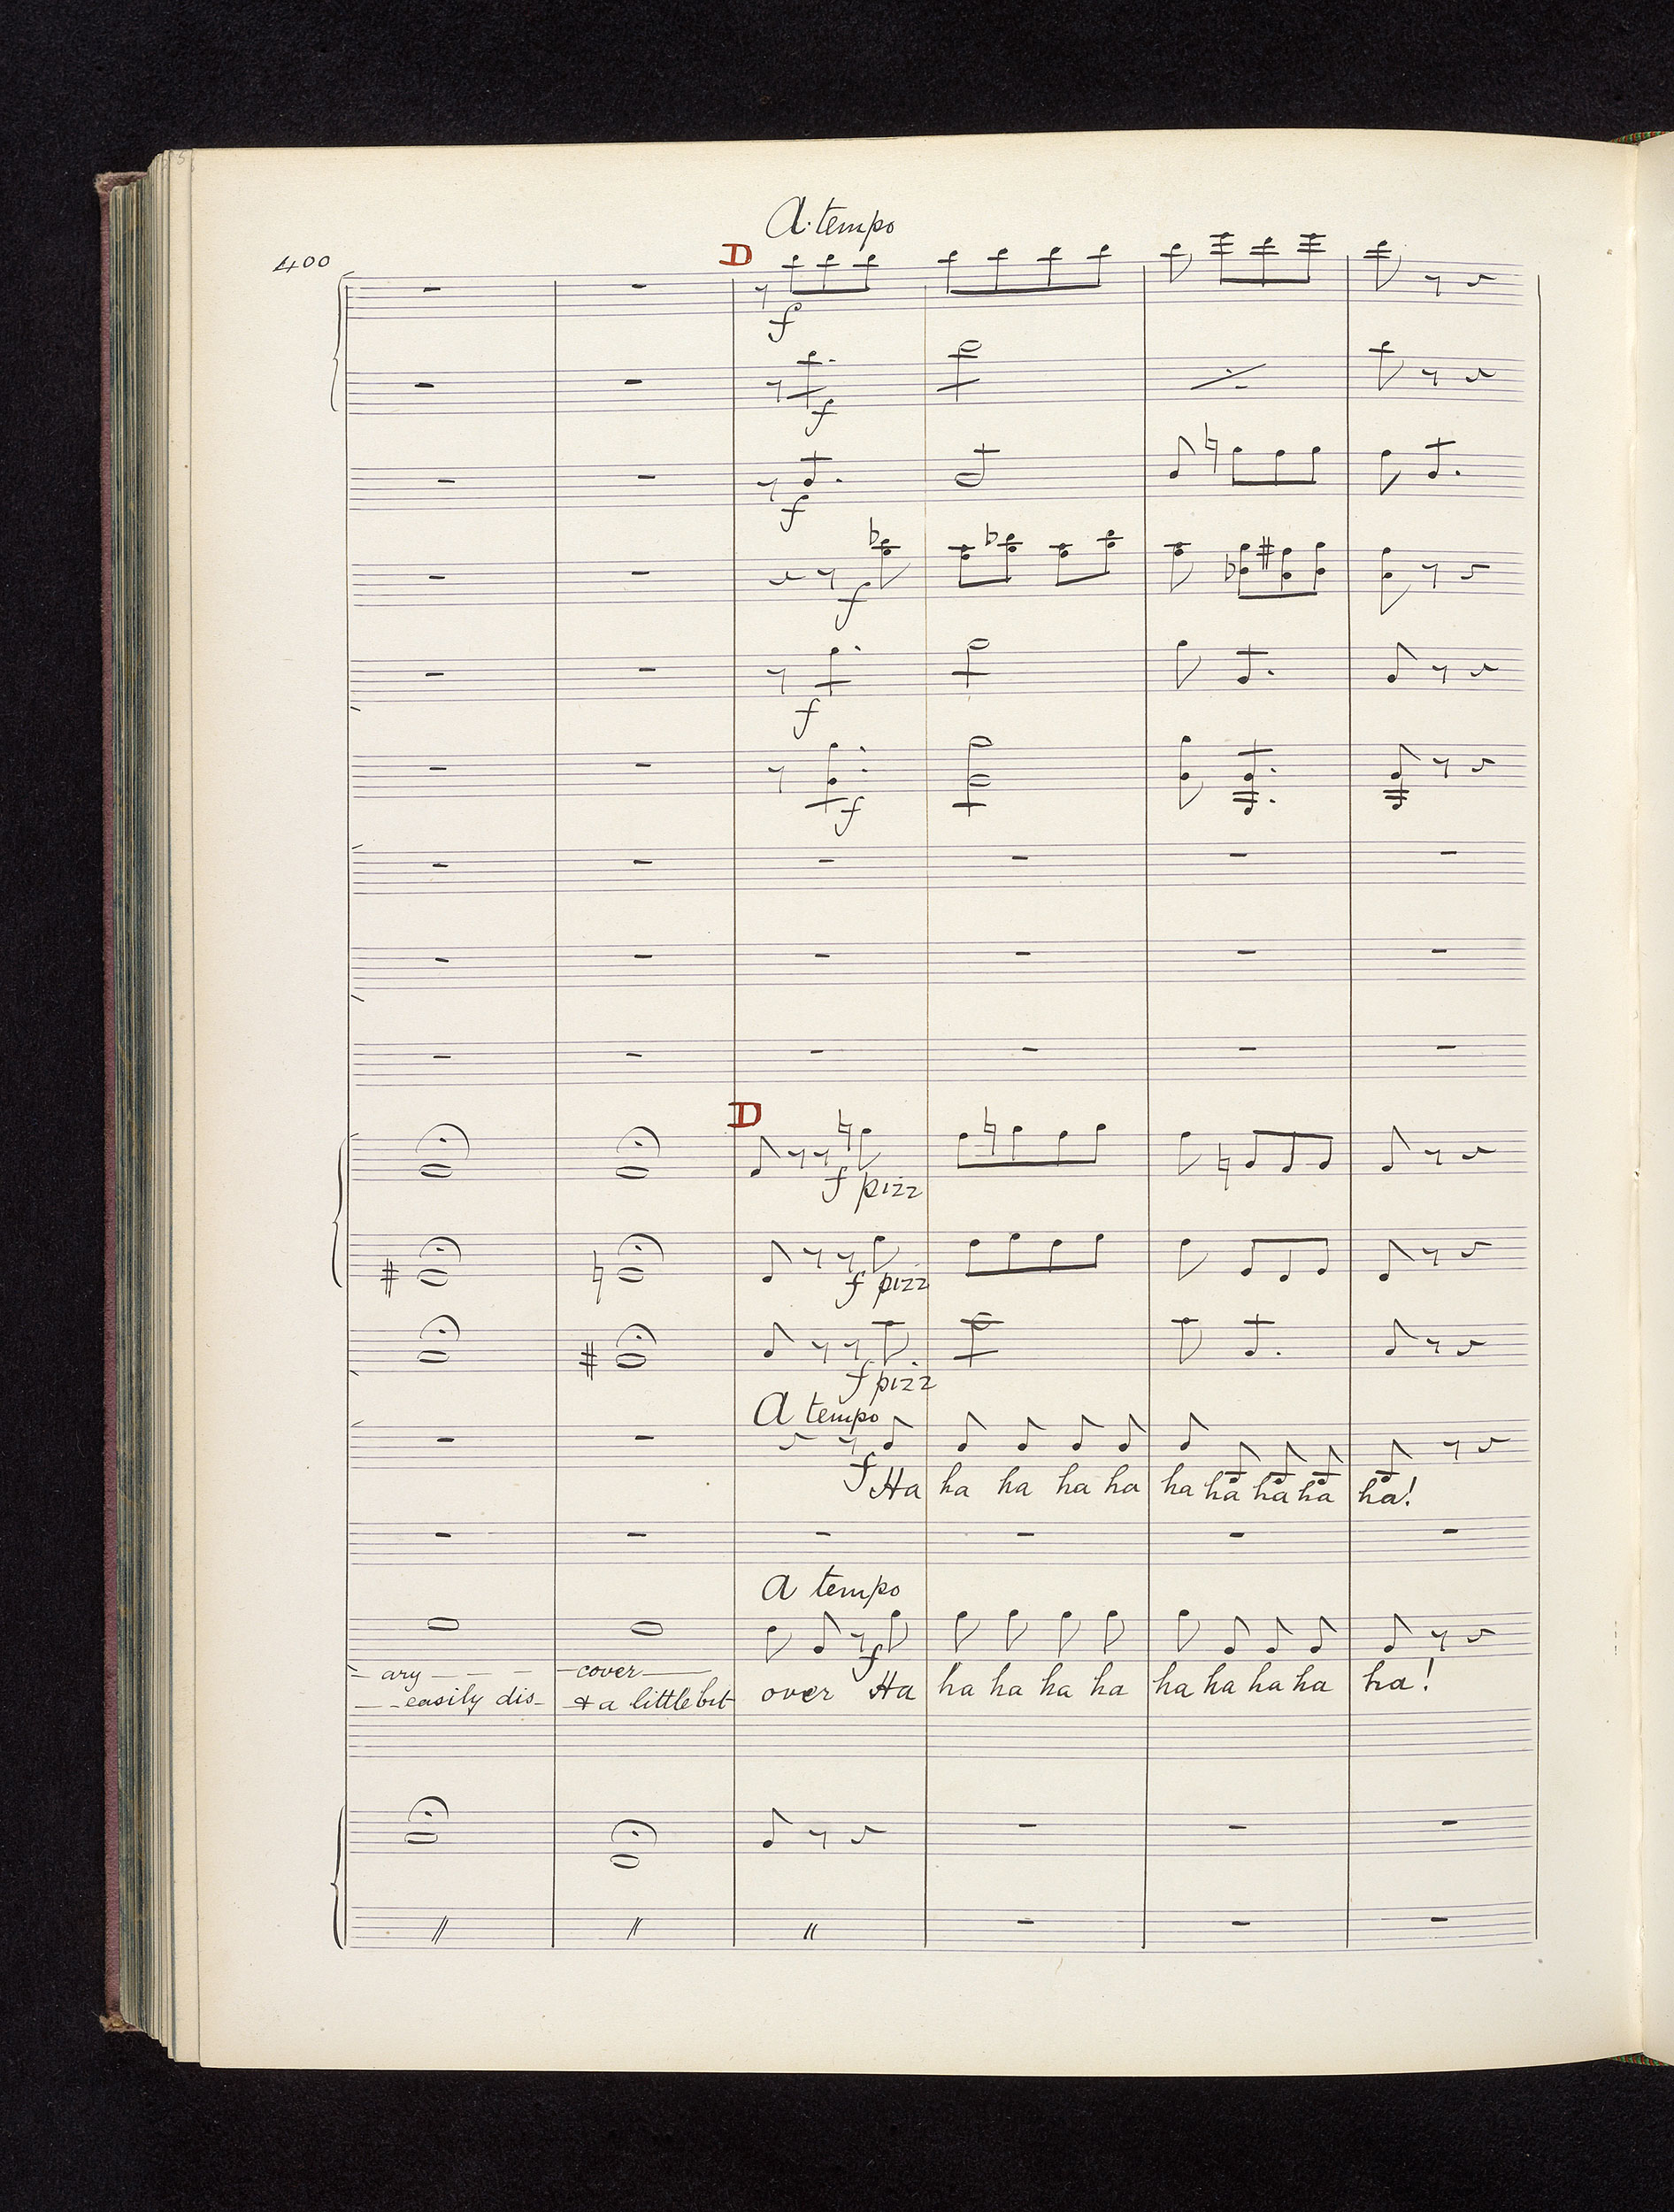 A tempo
400
D
f
f
f
f
f
f
D
f pizz
f pizz
f pizz
A tempo
f
Ha ha ha ha ha ha ha ha ha ha!
A tempo
f
- ary - - - - cover -
- - easily dis- & a little bit over Ha ha ha ha ha ha ha ha ha ha!